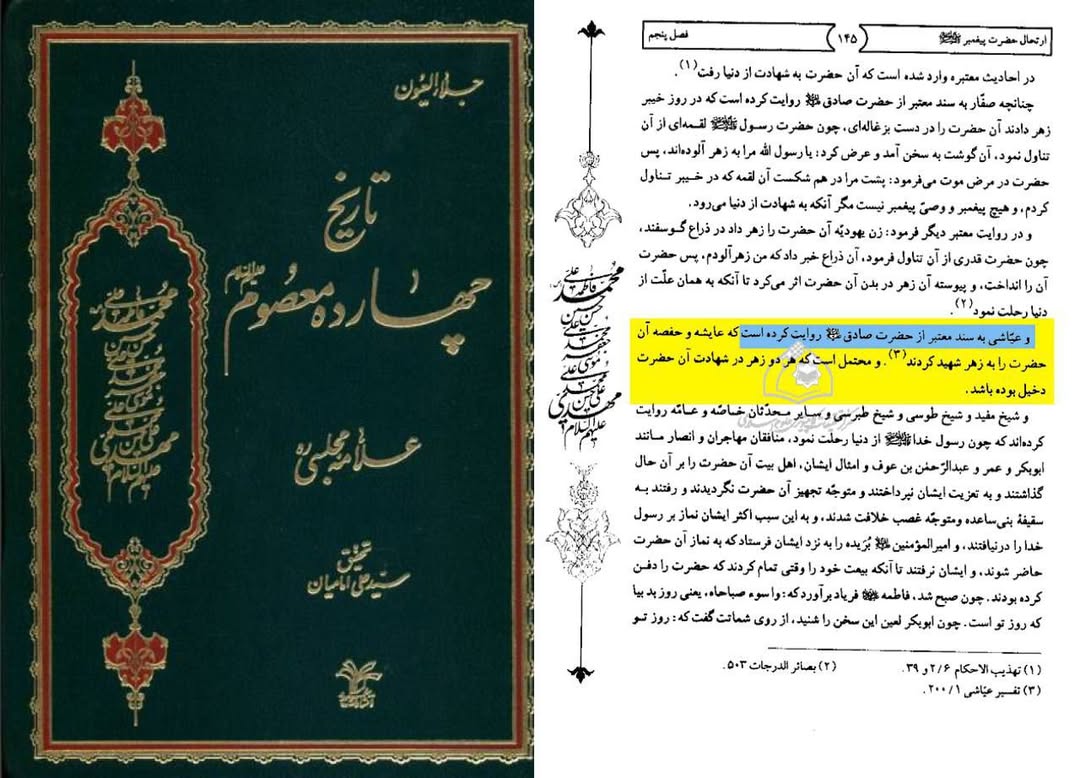 جلاء العیون
تاریخ
چهارده معصوم علیهم السلام
علامه مجلسی ره
تحقیق
سید علی امامیان
ارتحال حضرت پیغمبر ﷺ
۱۴۵
فصل پنجم
در احادیث معتبره وارد شده است که آن حضرت به شهادت از دنیا رفت(۱).
چنانچه صفّار به سند معتبر از حضرت صادق علیه السلام روایت کرده است که در روز خیبر
زهر دادند آن حضرت را در دست بزغاله‌ای، چون حضرت رسول ﷺ لقمه‌ای از آن
تناول نمود، آن گوشت به سخن آمد و عرض کرد: یا رسول الله مرا به زهر آلوده‌اند، پس
حضرت در مرض موت می‌فرمود: پشت مرا در هم شکست آن لقمه که در خیبر تناول
کردم، و هیچ پیغمبر و وصیّ پیغمبر نیست مگر آنکه به شهادت از دنیا می‌رود.
و در روایت معتبر دیگر فرمود: زن یهودیّه آن حضرت را زهر داد در ذراع گوسفند،
چون حضرت قدری از آن تناول فرمود، آن ذراع خبر داد که من زهرآلودم، پس حضرت
آن را انداخت، و پیوسته آن زهر در بدن آن حضرت اثر می‌کرد تا آنکه به همان علّت از
دنیا رحلت نمود(۲).
و عیّاشی به سند معتبر از حضرت صادق علیه السلام روایت کرده است که عایشه و حفصه آن
حضرت را به زهر شهید کردند(۳). و محتمل است که هر دو زهر در شهادت آن حضرت
دخیل بوده باشد.
و شیخ مفید و شیخ طوسی و شیخ طبرسی و سایر محدّثان خاصّه و عامّه روایت
کرده‌اند که چون رسول خدا ﷺ از دنیا رحلت نمود، منافقان مهاجران و انصار مانند
ابوبکر و عمر و عبدالرّحمٰن بن عوف و امثال ایشان، اهل بیت آن حضرت را بر آن حال
گذاشتند و به تعزیت ایشان نپرداختند و متوجّه تجهیز آن حضرت نگردیدند و رفتند به
سقیفهٔ بنی‌ساعده ومتوجّه غصب خلافت شدند، و به این سبب اکثر ایشان نماز بر رسول
خدا را درنیافتند، و امیرالمؤمنین علیه السلام بُرَیده را به نزد ایشان فرستاد که به نماز آن حضرت
حاضر شوند، و ایشان نرفتند تا آنکه بیعت خود را وقتی تمام کردند که حضرت را دفن
کرده بودند. چون صبح شد، فاطمه علیها السلام فریاد برآورد که: واسوء صباحاه، یعنی روز بد بیا
که روز تو است. چون ابوبکر لعین این سخن را شنید، از روی شماتت گفت که: روز تو
(۱) تهذیب الاحکام ۲/۶ و ۳۹.
(۲) بصائر الدرجات ۵۰۳.
(۳) تفسیر عیّاشی ۲۰۰/۱.